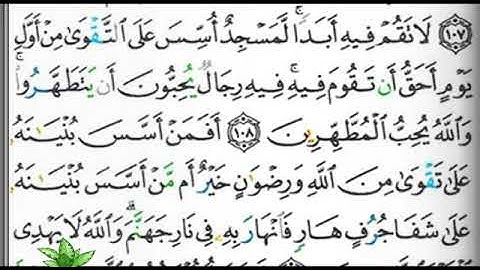 ١٠٧ لَا تَقُمْ فِيهِ أَبَدًا ۚ لَّمَسْجِدٌ أُسِّسَ عَلَى ٱلتَّقْوَىٰ مِنْ أَوَّلِ
يَوْمٍ أَحَقُّ أَن تَقُومَ فِيهِ ۚ فِيهِ رِجَالٌ يُحِبُّونَ أَن يَتَطَهَّرُوا۟ ۚ
وَٱللَّهُ يُحِبُّ ٱلْمُطَّهِّرِينَ ١٠٨ أَفَمَنْ أَسَّسَ بُنْيَٰنَهُۥ
عَلَىٰ تَقْوَىٰ مِنَ ٱللَّهِ وَرِضْوَٰنٍ خَيْرٌ أَم مَّنْ أَسَّسَ بُنْيَٰنَهُۥ
عَلَىٰ شَفَا جُرُفٍ هَارٍ فَٱنْهَارَ بِهِۦ فِى نَارِ جَهَنَّمَ ۗ وَٱللَّهُ لَا يَهْدِى